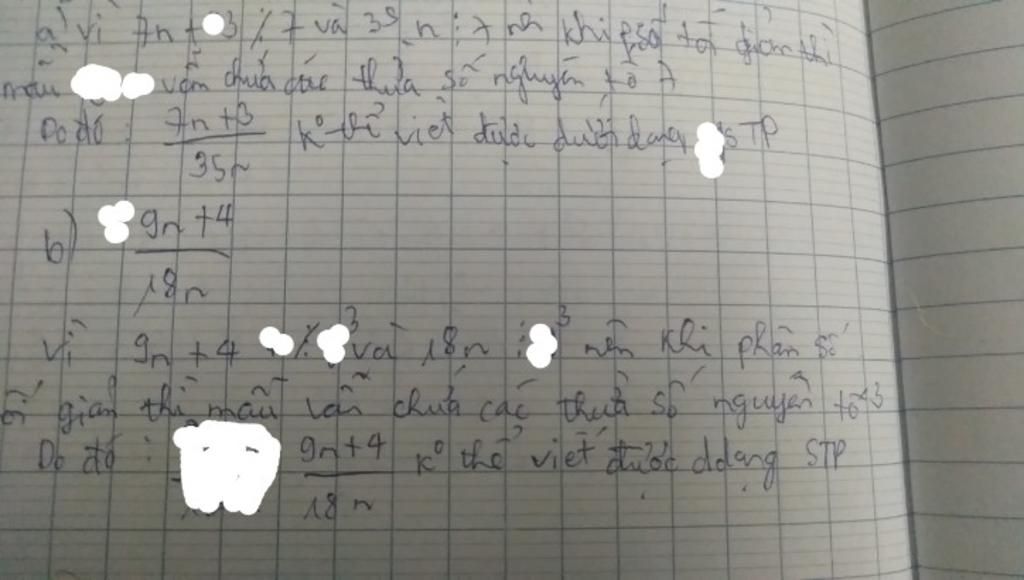 a) vì 7n + 3 ⋮̸ 7 và 35n ⋮ 7 nên khi psố tối giản thì
mẫu vẫn chứa các thừa số nguyên tố 7
Do đó : 7n+3/35n k° thể viết được dưới dạng STP
b) 9n+4/18n
Vì 9n + 4 ⋮̸ 3 và 18n ⋮ 3 nên khi phân số
tối giản thì mẫu vẫn chứa các thừa số nguyên tố 3
Do đó : 9n+4/18n k° thể viết được ddạng STP